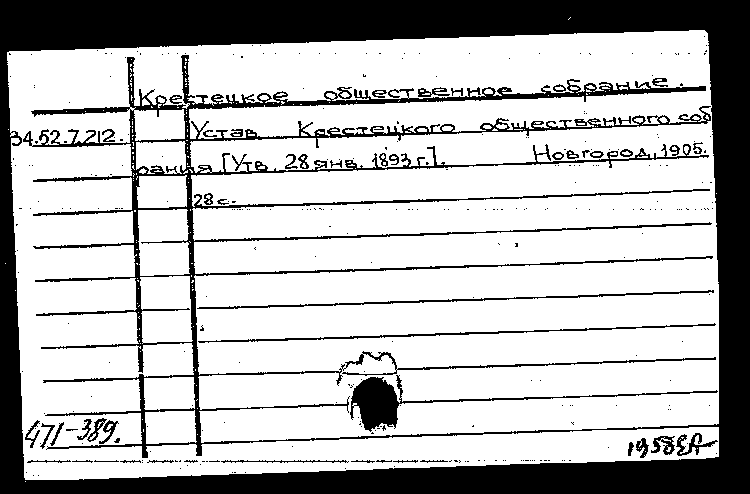 Крестецкое общественное собрание.
34.52.7.212. Устав Крестецкого общественного соб
рания [Утв. 28 янв. 1893 г.]. Новгород, 1905.
28 с.
471-389.